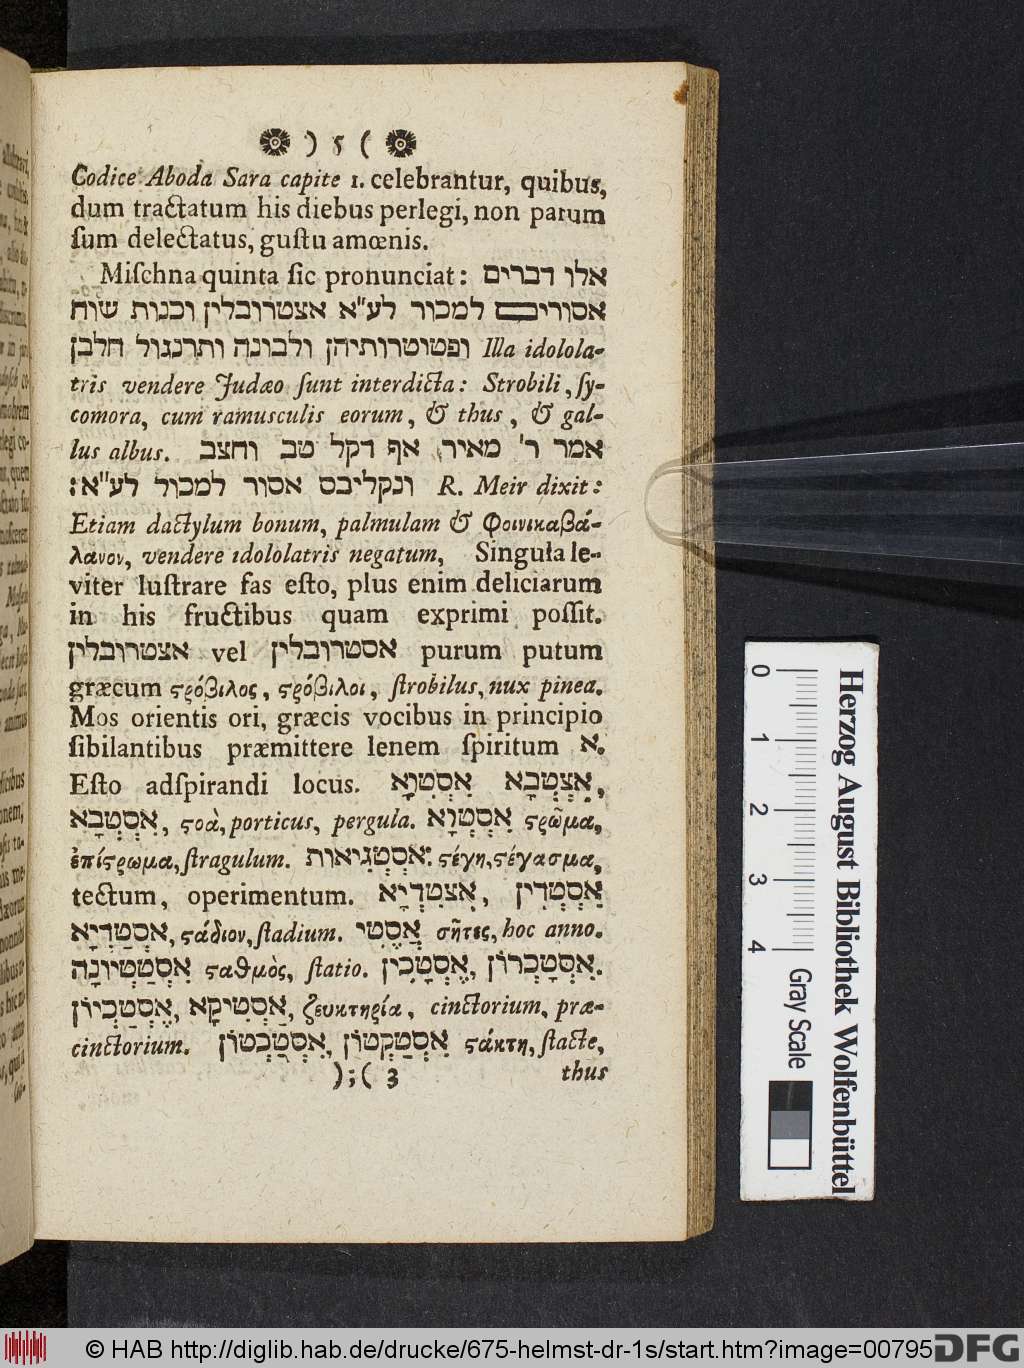 ) 5 (
Codice Aboda Sara capite 1. celebrantur, quibus,
dum tractatum his diebus perlegi, non parum
ſum delectatus, guſtu amœnis.
Miſchna quinta ſic pronunciat: אלו דברים
אסורים למכור לע״א אצטרובלין וכנות שוח
ופטוטרותיהן ולבונה ותרנגול חלבן Illa idolola-
tris vendere Judæo ſunt interdicta: Strobili, ſy-
comora, cum ramusculis eorum, & thus, & gal-
lus albus. אמר ר' מאיר, אף דקל טב וחצב
ונקליבס אסור למכול לע״א: R. Meir dixit:
Etiam dactylum bonum, palmulam & Φοινικαβά-
λανον, vendere idololatris negatum, Singula le-
viter luſtrare fas eſto, plus enim deliciarum
in his fructibus quam exprimi poſſit.
אצטרובלין vel אסטרובלין purum putum
græcum ϛρόβιλος, ϛρόβιλοι, ſtrobilus, nux pinea.
Mos orientis ori, græcis vocibus in principio
ſibilantibus præmittere lenem ſpiritum א.
Eſto adſpirandi locus. אִסְטְוָא אִצְטְבָא,
אִסְטְבָא, ϛοὰ, porticus, pergula. אִסְטְוָא ϛρῶμα,
ἐπίϛρωμα, ſtragulum. אִסְטְגִיאוֹת: ϛέγη, ϛέγασμα,
tectum, operimentum. אִצטַדְיָא, אַסְטְדִין
אִסְטַדְיָא, ϛάδιον, ſtadium. אֲסֶטִי σῆτες, hoc anno.
אִסְטַטְיוֹנָה ϛαθμὸς, ſtatio. אִסְטָכְרוֹן, אֶסְטָכִין.
אֶסְטַכְיוֹן, אַסְטִיקָא, ζευκτηρία, cinctorium, præ-
cinctorium. אִסְטַקְטוֹן, אִסְטַכְטוֹן ϛάκτη, ſtacte,
);( 3 thus
0 1 2 3 4
Gray Scale
Herzog August Bibliothek Wolfenbüttel
© HAB http://diglib.hab.de/drucke/675-helmst-dr-1s/start.htm?image=00795
DFG